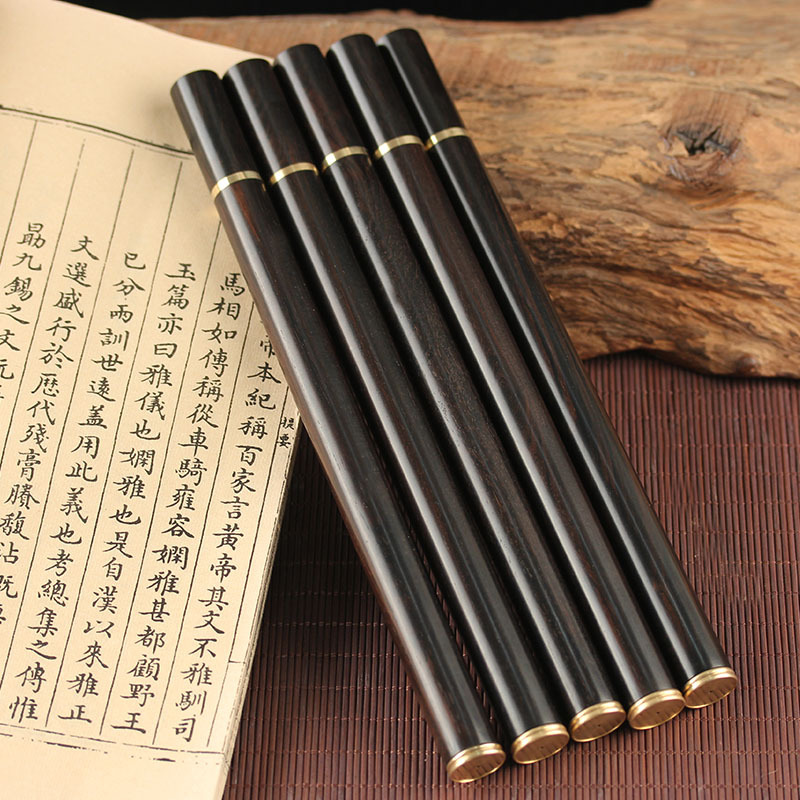 提要
帝本紀稱百家言黃帝其文不雅馴司
馬相如傳稱從車騎雍容嫻雅甚都顧野王
玉篇亦曰雅儀也嫻雅也是自漢以來雅正
已分兩訓世遠蓋用此義也考總集之傳惟
文選盛行於歴代殘膏賸馥沾溉
勗九錫之文阮